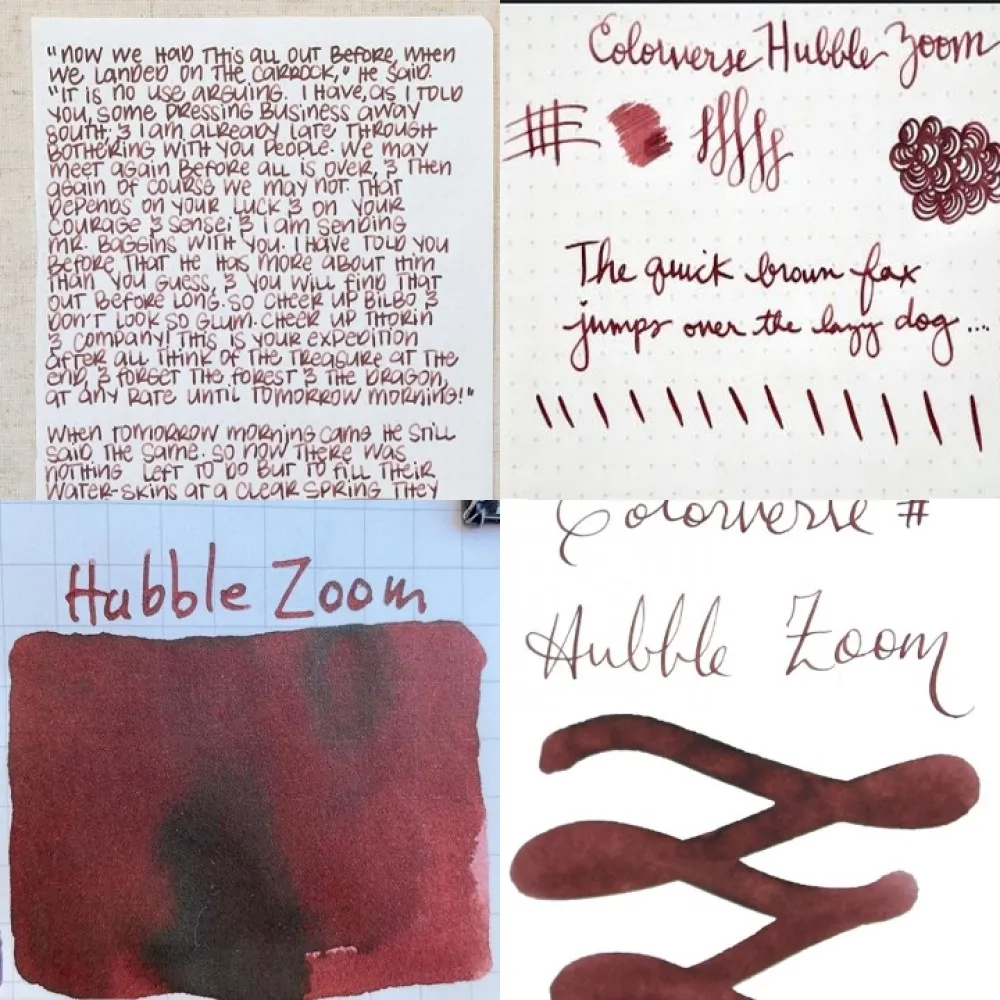 "NOW WE HAD THIS ALL OUT BEFORE, WHEN
WE LANDED ON THE CARROCK," HE SAID.
"IT IS NO USE ARGUING. I HAVE, AS I TOLD
YOU, SOME PRESSING BUSINESS AWAY
SOUTH; & I AM ALREADY LATE THROUGH
BOTHERING WITH YOU PEOPLE. WE MAY
MEET AGAIN BEFORE ALL IS OVER, & THEN
AGAIN OF COURSE WE MAY NOT. THAT
DEPENDS ON YOUR LUCK & ON YOUR
COURAGE & SENSE; & I AM SENDING
MR. BAGGINS WITH YOU. I HAVE TOLD YOU
BEFORE THAT HE HAS MORE ABOUT HIM
THAN YOU GUESS, & YOU WILL FIND THAT
OUT BEFORE LONG. SO CHEER UP BILBO &
DON'T LOOK SO GLUM. CHEER UP THORIN
& COMPANY! THIS IS YOUR EXPEDITION
AFTER ALL. THINK OF THE TREASURE AT THE
END, & FORGET THE FOREST & THE DRAGON,
AT ANY RATE UNTIL TOMORROW MORNING!"
WHEN TOMORROW MORNING CAME HE STILL
SAID THE SAME. SO NOW THERE WAS
NOTHING LEFT TO DO BUT TO FILL THEIR
WATER-SKINS AT A CLEAR SPRING THEY
Colorverse Hubble Zoom
The quick brown fox
jumps over the lazy dog ....
Hubble Zoom
Colorverse #
Hubble Zoom